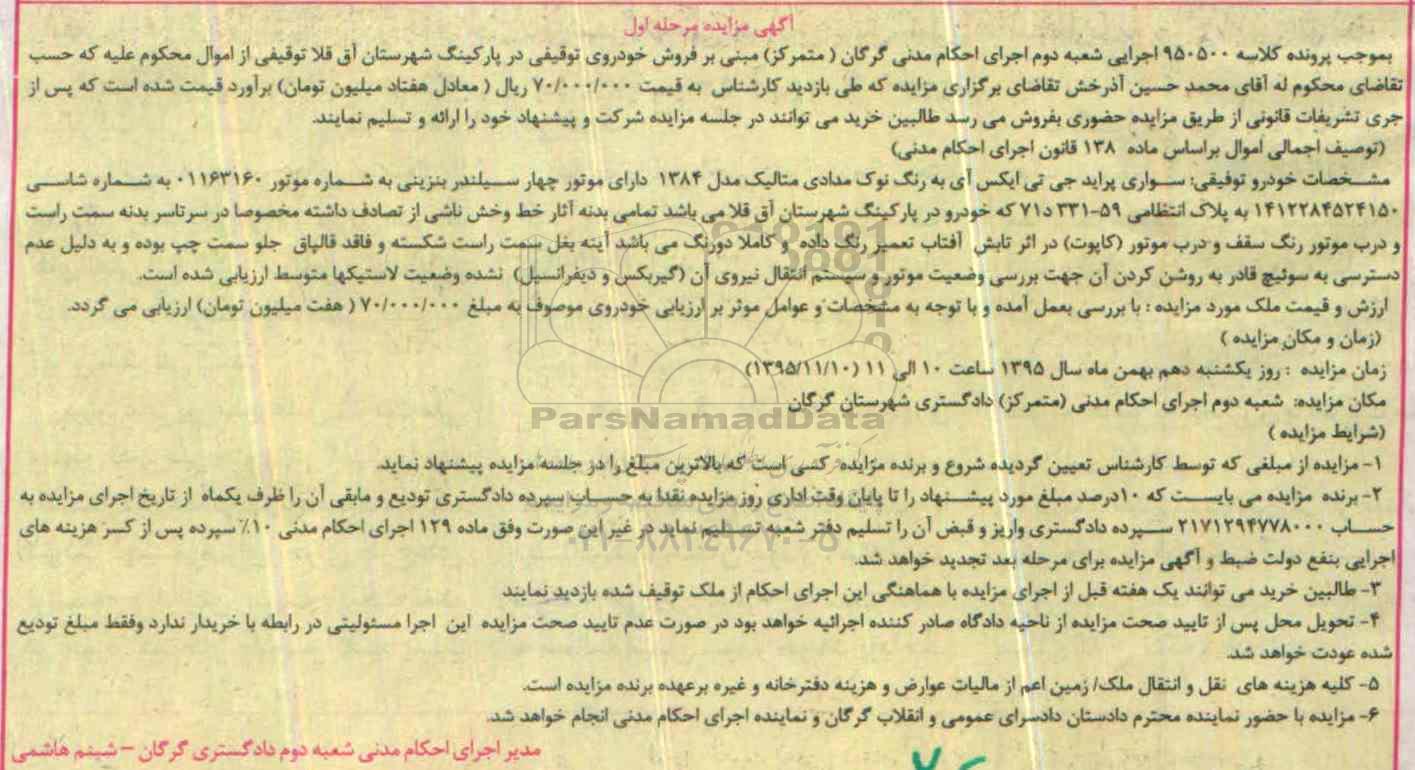 آگهی مزایده مرحله اول
بموجب پرونده کلاسه ۹۵۰۵۰۰ اجرایی شعبه دوم اجرای احکام مدنی گرگان ( متمرکز) مبنی بر فروش خودروی توقیفی در پارکینگ شهرستان آق قلا توقیفی از اموال محکوم علیه که حسب
تقاضای محکوم له آقای محمد حسین آذرخش تقاضای برگزاری مزایده که طی بازدید کارشناس به قیمت ۷۰/۰۰۰/۰۰۰ ریال ( معادل هفتاد میلیون تومان) برآورد قیمت شده است که پس از
جری تشریفات قانونی از طریق مزایده حضوری بفروش می رسد طالبین خرید می توانند در جلسه مزایده شرکت و پیشنهاد خود را ارائه و تسلیم نمایند.
(توصیف اجمالی اموال براساس ماده ۱۳۸ قانون اجرای احکام مدنی)
مشخصات خودرو توقیفی: سواری پراید جی تی ایکس آی به رنگ نوک مدادی متالیک مدل ۱۳۸۴ دارای موتور چهار سیلندر بنزینی به شماره موتور ۰۱۱۶۳۱۶۰ به شماره شاسی
۱۴۱۲۲۸۴۵۲۴۱۵۰ به پلاک انتظامی ۵۹-۳۳۱د۷۱ که خودرو در پارکینگ شهرستان آق قلا می باشد تمامی بدنه آثار خط وخش ناشی از تصادف داشته مخصوصا در سرتاسر بدنه سمت راست
و درب موتور رنگ سقف و درب موتور (کاپوت) در اثر تابش آفتاب تعمیر رنگ داده و کاملا دورنگ می باشد آینه بغل سمت راست شکسته و فاقد قالپاق جلو سمت چپ بوده و به دلیل عدم
دسترسی به سوئیچ قادر به روشن کردن آن جهت بررسی وضعیت موتور و سیستم انتقال نیروی آن (گیربکس و دیفرانسیل) نشده وضعیت لاستیکها متوسط ارزیابی شده است.
ارزش و قیمت ملک مورد مزایده : با بررسی بعمل آمده و با توجه به مشخصات و عوامل موثر بر ارزیابی خودروی موصوف به مبلغ ۷۰/۰۰۰/۰۰۰ ( هفت میلیون تومان) ارزیابی می گردد.
(زمان و مکان مزایده )
زمان مزایده : روز یکشنبه دهم بهمن ماه سال ۱۳۹۵ ساعت ۱۰ الی ۱۱ (۱۳۹۵/۱۱/۱۰)
مکان مزایده: شعبه دوم اجرای احکام مدنی (متمرکز) دادگستری شهرستان گرگان
ParsNamadData
(شرایط مزایده )
۱- مزایده از مبلغی که توسط کارشناس تعیین گردیده شروع و برنده مزایده کسی است که بالاترین مبلغ را در جلسه مزایده پیشنهاد نماید.
۲- برنده مزایده می بایست که ۱۰درصد مبلغ مورد پیشنهاد را تا پایان وقت اداری روز مزایده نقدا به حساب سپرده دادگستری تودیع و مابقی آن را ظرف یکماه از تاریخ اجرای مزایده به
حساب ۲۱۷۱۲۹۴۷۷۸۰۰۰ سپرده دادگستری واریز و قبض آن را تسلیم دفتر شعبه تسلیم نماید در غیر این صورت وفق ماده ۱۲۹ اجرای احکام مدنی ۱۰٪ سپرده پس از کسر هزینه های
اجرایی بنفع دولت ضبط و آگهی مزایده برای مرحله بعد تجدید خواهد شد.
۳- طالبین خرید می توانند یک هفته قبل از اجرای مزایده با هماهنگی این اجرای احکام از ملک توقیف شده بازدید نمایند
۴- تحویل محل پس از تایید صحت مزایده از ناحیه دادگاه صادر کننده اجرائیه خواهد بود در صورت عدم تایید صحت مزایده این اجرا مسئولیتی در رابطه با خریدار ندارد وفقط مبلغ تودیع
شده عودت خواهد شد.
۵- کلیه هزینه های نقل و انتقال ملک/ زمین اعم از مالیات عوارض و هزینه دفترخانه و غیره برعهده برنده مزایده است.
۶- مزایده با حضور نماینده محترم دادستان دادسرای عمومی و انقلاب گرگان و نماینده اجرای احکام مدنی انجام خواهد شد.
مدیر اجرای احکام مدنی شعبه دوم دادگستری گرگان – شبنم هاشمی